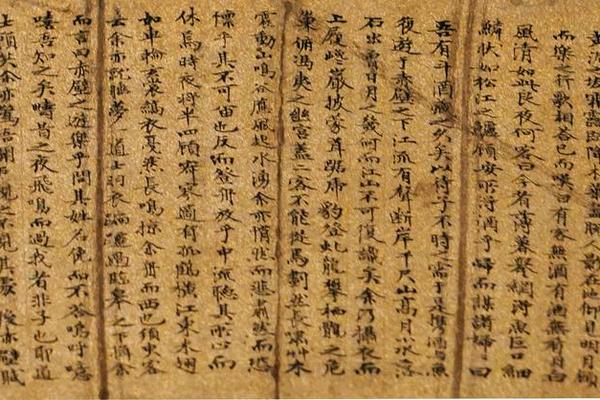 黄泥坂霜露既降木葉盡脫人影在地仰見明月顧
而樂之行歌相答已而嘆曰有客無酒有酒無肴月白
風清如此良夜何客曰今者薄暮舉網得魚巨口細
鱗狀如松江之鱸顧安所得酒乎歸而謀諸婦曰
吾有斗酒藏之久矣以待子不時之需于是攜酒與魚
復遊于赤壁之下江流有聲斷岸千尺山高月小水落
石出曾日月之幾何而江山不可復識矣余乃攝衣而
上履巉巖披蒙茸踞虎豹登虬龍攀栖鶻之危
巢俯馮夷之幽宮蓋二客不能從焉劃然長嘯草木
震動山鳴谷應風起水湧余亦悄然而悲肅然而恐
懍乎其不可留也反而登舟放乎中流聽其所止而
休焉時夜將半四顧寂寥適有孤鶴橫江東來翅
如車輪玄裳縞衣戛然長鳴掠余舟而西也須臾客
去余亦就睡夢一道士羽衣蹁躚過臨皋之下揖余
而言曰赤壁之遊樂乎問其姓名俛而不答嗚呼噫
嘻吾知之矣疇昔之夜飛鳴而過我者非子也耶道
士顧笑余亦驚悟開戶視之不見其處 後赤壁賦